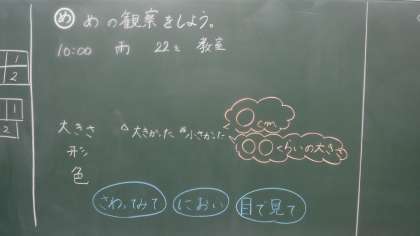 め めの観察をしよう。
10:00 雨 22℃ 教室
1
2
1
2
大きさ 大きかった 小さかった
○cm
○○くらいの大きさ
形
色
さわってみて におい 目で見て